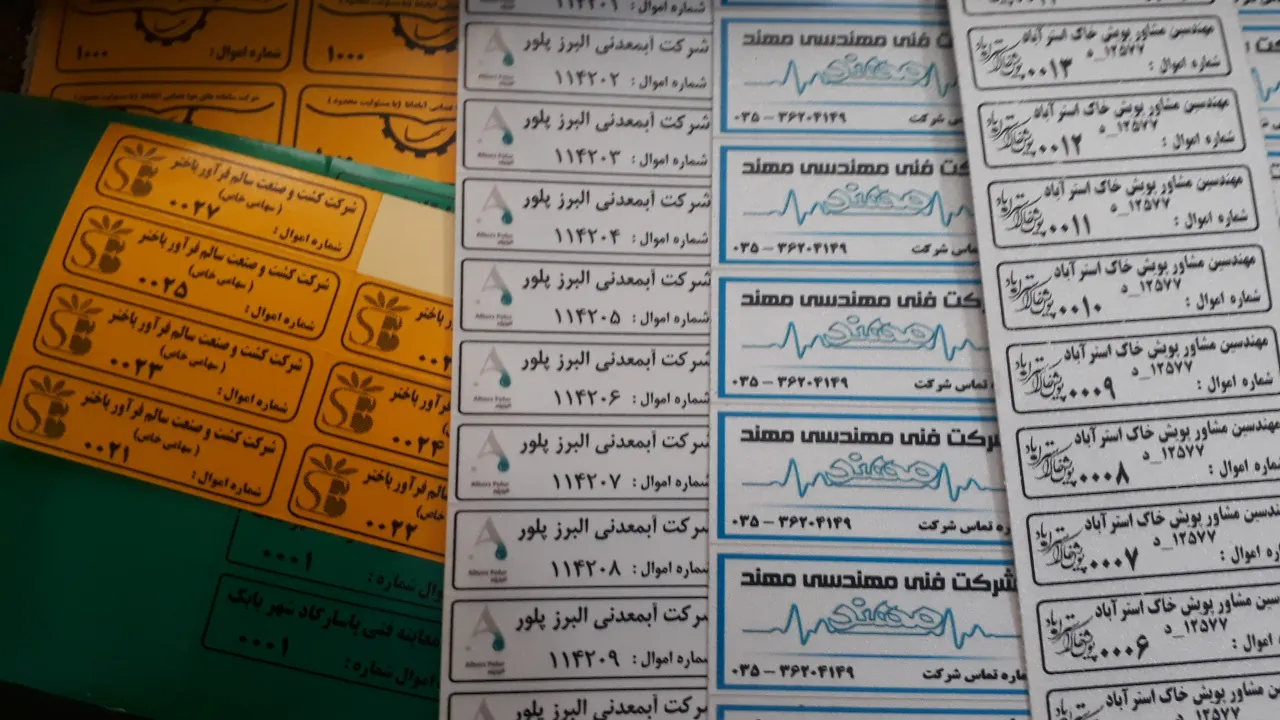 شماره اموال :
۱۰۰۰
۱۰۰۰
شرکت کشت و صنعت سالم فرآور باختر
(سهامی خاص)
شماره اموال :
۰۰۲۷
شرکت کشت و صنعت سالم فرآور باختر
(سهامی خاص)
شماره اموال :
۰۰۲۵
شرکت کشت و صنعت سالم فرآور باختر
(سهامی خاص)
شماره اموال :
۰۰۲۳
شرکت کشت و صنعت سالم فرآور باختر
(سهامی خاص)
شماره اموال :
۰۰۲۱
فرآور باختر
۰۰۲۴
سالم فرآور باختر
خاص)
۰۰۲۲
۰۰۰۱
اموال شماره :
معاینه فنی پاسارگاد شهر بابک
اموال شماره :
۰۰۰۱
شماره اموال : ۱۱۴۲۰۱
شرکت آبمعدنی البرز پلور
شماره اموال : ۱۱۴۲۰۲
شرکت آبمعدنی البرز پلور
شماره اموال : ۱۱۴۲۰۳
شرکت آبمعدنی البرز پلور
شماره اموال : ۱۱۴۲۰۴
شرکت آبمعدنی البرز پلور
شماره اموال : ۱۱۴۲۰۵
شرکت آبمعدنی البرز پلور
شماره اموال : ۱۱۴۲۰۶
شرکت آبمعدنی البرز پلور
شماره اموال : ۱۱۴۲۰۷
شرکت آبمعدنی البرز پلور
شماره اموال : ۱۱۴۲۰۸
شرکت آبمعدنی البرز پلور
شماره اموال : ۱۱۴۲۰۹
شرکت آبمعدنی البرز پلور
شرکت فنی مهندسی مهند
تماس شرکت ۰۳۵ – ۳۶۲۰۴۱۴۹
شرکت فنی مهندسی مهند
تماس شرکت ۰۳۵ – ۳۶۲۰۴۱۴۹
شرکت فنی مهندسی مهند
تماس شرکت ۰۳۵ – ۳۶۲۰۴۱۴۹
شرکت فنی مهندسی مهند
شماره تماس شرکت ۰۳۵ – ۳۶۲۰۴۱۴۹
شرکت فنی مهندسی مهند
شماره تماس شرکت ۰۳۵ – ۳۶۲۰۴۱۴۹
مهندسین مشاور پویش خاک استرآباد
۱۲۵۷۷_د
شماره اموال : ۰۰۱۳
مهندسین مشاور پویش خاک استرآباد
۱۲۵۷۷_د
شماره اموال : ۰۰۱۲
مهندسین مشاور پویش خاک استرآباد
۱۲۵۷۷_د
شماره اموال : ۰۰۱۱
مهندسین مشاور پویش خاک استرآباد
۱۲۵۷۷_د
شماره اموال : ۰۰۱۰
مهندسین مشاور پویش خاک استرآباد
۱۲۵۷۷_د
شماره اموال : ۰۰۰۹
مهندسین مشاور پویش خاک استرآباد
۱۲۵۷۷_د
اموال : ۰۰۰۸
مشاور پویش خاک استرآباد
۱۲۵۷۷_د
اموال : ۰۰۰۷
مشاور پویش خاک استرآباد
۱۲۵۷۷_د
اموال : ۰۰۰۶
پویش خاک استرآباد
۱۲۵۷۷